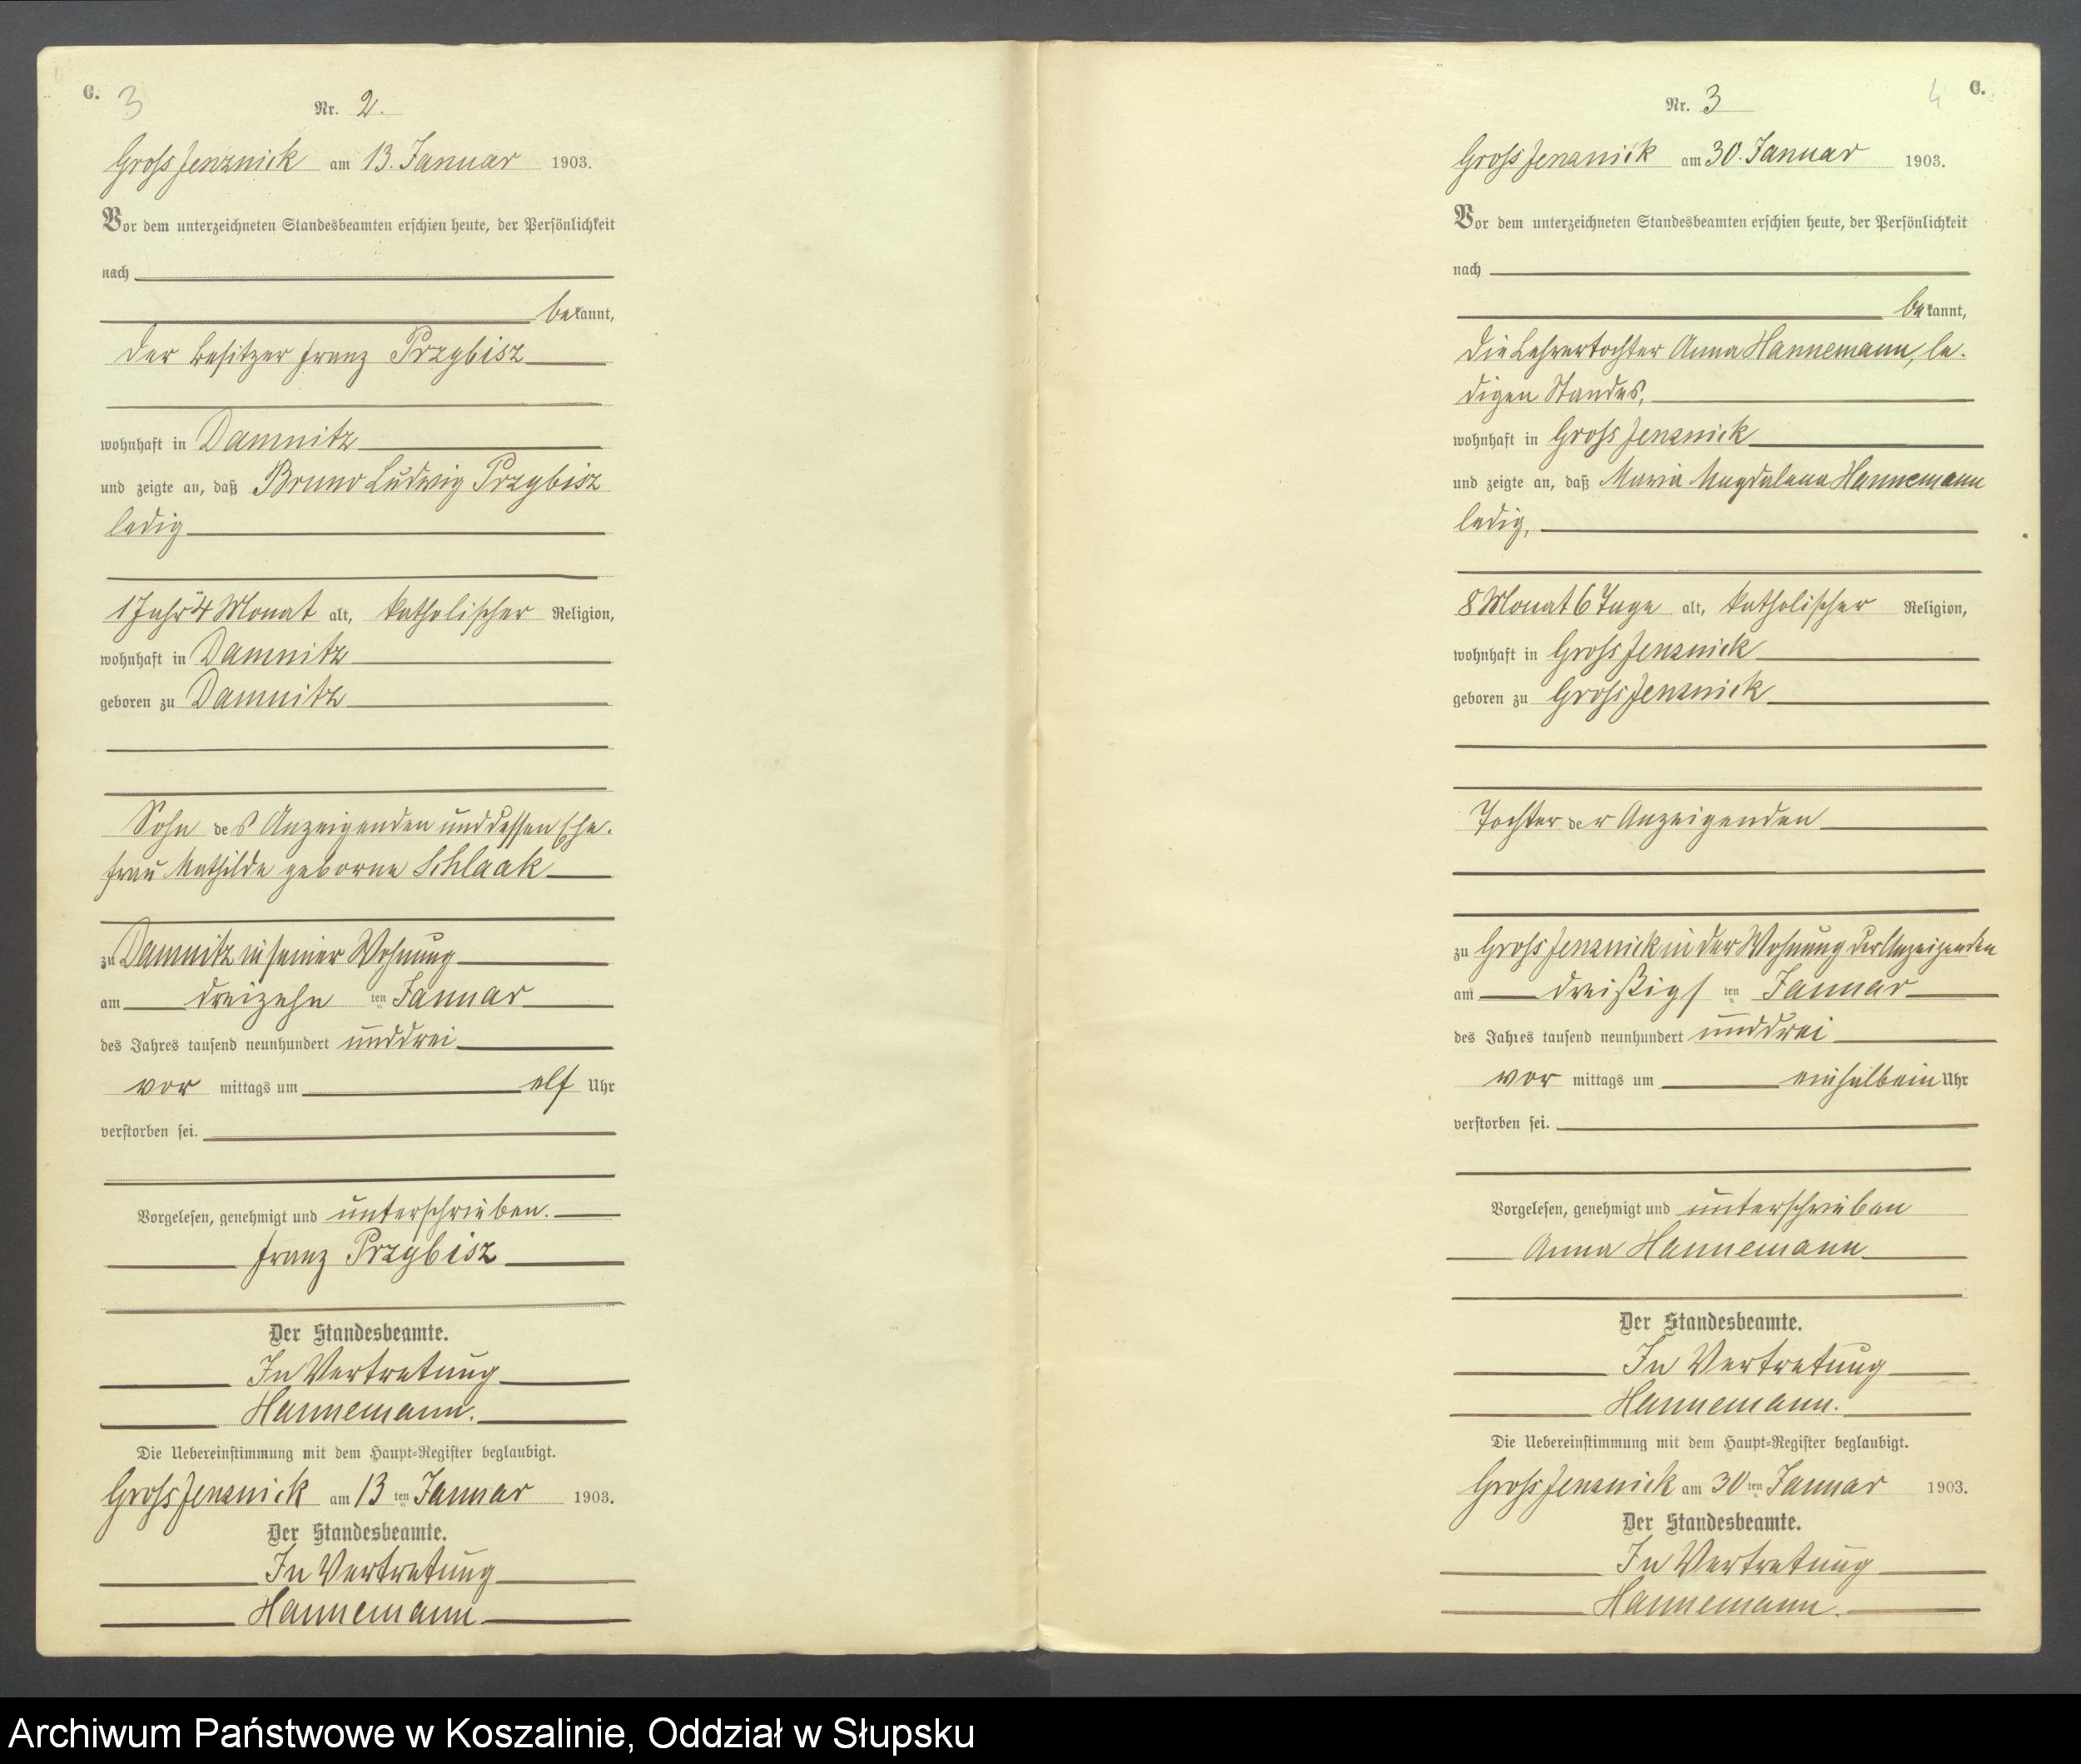 C. 3
Nr. 2.
Gross Jenznick am 13. Januar 1903.
Vor dem unterzeichneten Standesbeamten erschien heute, der Persönlichkeit
nach
bekannt,
der Besitzer Franz Przybisz
wohnhaft in Damnitz
und zeigte an, daß Bruno Ludwig Przybisz
ledig
1 Jahr 4 Monat alt, katholischer Religion,
wohnhaft in Damnitz
geboren zu Damnitz
Sohn des Anzeigenden und dessen Ehe-
frau Mathilde geborne Schlaak
zu Damnitz in seiner Wohnung
am dreizehn ten Januar
des Jahres tausend neunhundert und drei
vor mittags um elf Uhr
verstorben sei.
Vorgelesen, genehmigt und unterschrieben.
Franz Przybisz
Der Standesbeamte.
In Vertretung
Hannemann.
Die Uebereinstimmung mit dem Haupt-Register beglaubigt.
Gross Jenznick am 13 ten Januar 1903.
Der Standesbeamte.
In Vertretung
Hannemann
4 C.
Nr. 3
Gross Jenznick am 30. Januar 1903.
Vor dem unterzeichneten Standesbeamten erschien heute, der Persönlichkeit
nach
bekannt,
die Lehrertochter Anna Hannemann, le-
digen Standes,
wohnhaft in Gross Jenznick
und zeigte an, daß Maria Magdalena Hannemann
ledig,
8 Monat 6 Tage alt, katholischer Religion,
wohnhaft in Gross Jenznick
geboren zu Gross Jenznick
Tochter der Anzeigenden
zu Gross Jenznick in der Wohnung der Anzeigenden
am dreißigs ten Januar
des Jahres tausend neunhundert und drei
vor mittags um einhalbein Uhr
verstorben sei.
Vorgelesen, genehmigt und unterschrieben
Anna Hannemann
Der Standesbeamte.
In Vertretung
Hannemann.
Die Uebereinstimmung mit dem Haupt-Register beglaubigt.
Gross Jenznick am 30 ten Januar 1903.
Der Standesbeamte.
In Vertretung
Hannemann.
Archiwum Państwowe w Koszalinie, Oddział w Słupsku